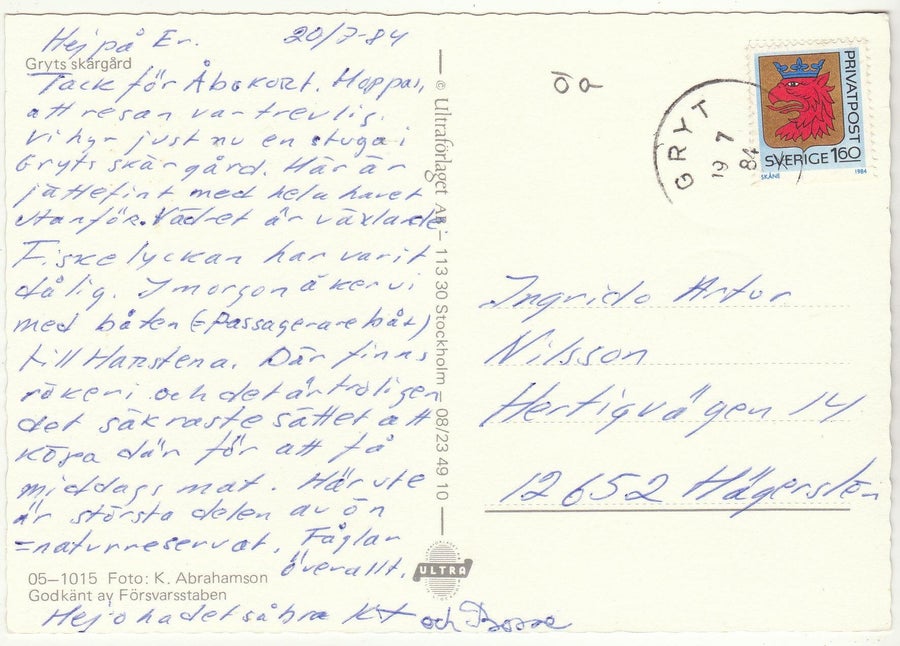 Hej på Er. 20/7-84
Gryts skärgård
Tack för Åbokort. Hoppas,
att resan var trevlig.
Vi hyr just nu en stuga i
Gryts skärgård. Här är
jättefint med hela havet
utanför. Vädret är växlande
Fiskelyckan har varit
dålig. I morgon åker vi
med båten (=passagerarebåt)
till Harstena. Där finns
rökeri och det är troligen
det säkraste sättet att
köpa där för att få
middags mat. Här ute
är största delen av ön
=naturreservat. Fåglar
överallt.
05–1015 Foto: K. Abrahamson
Godkänt av Försvarsstaben
Hej o ha det så bra
och Bosse
© Ultraförlaget AB – 113 30 Stockholm – 08/23 49 10
ULTRA
GRYT
19 7
84
PRIVATPOST
SVERIGE 160
SKÅNE 1984
Ingrid o Artur
Nilsson
Hertigvägen 14
12652 Hägersten